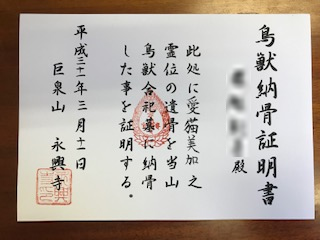 鳥獣納骨証明書
殿
此処に愛猫美加之
霊位の遺骨を当山
鳥獣合祀墓に納骨
した事を証明する。
平成三十一年三月十一日
巨泉山 永興寺